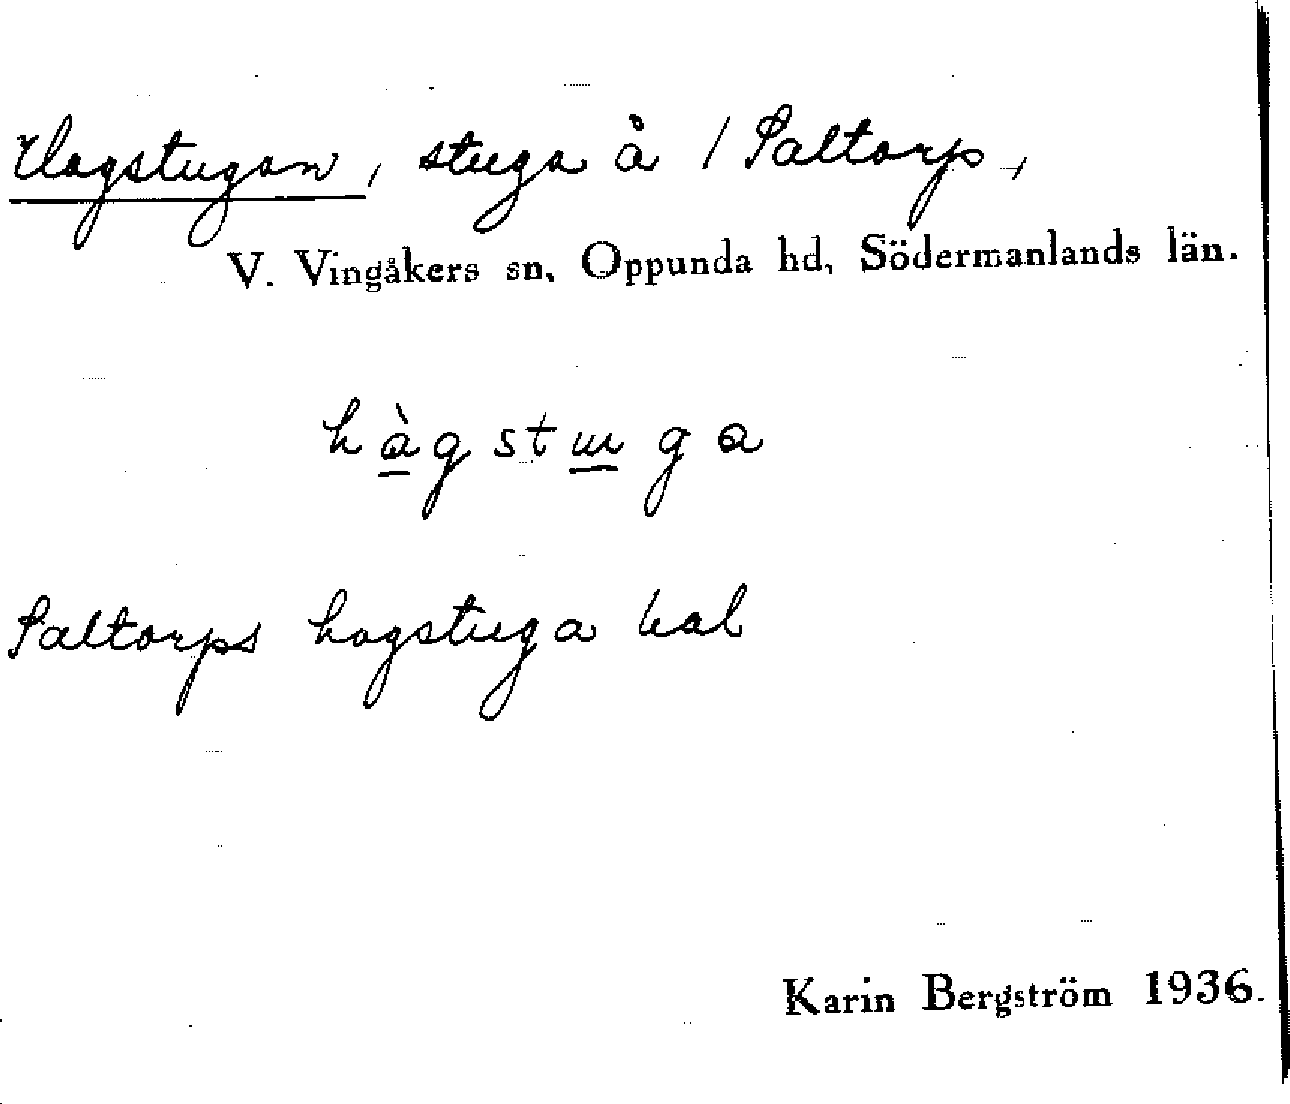 Hagstugan, stuga å / Saltorp,
V. Vingåkers sn, Oppunda hd, Södermanlands län.
hàgstuga
Saltorps hagstuga
Karin Bergström 1936.